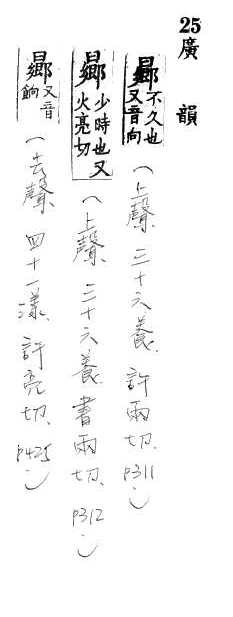 25 廣韻
曏 不久也又音向 (上聲、三十六養、許兩切、P311。)
曏 少時也又火亮切 (上聲、三十六養、書兩切、P312。)
曏 又音餉 (去聲、四十一漾、許亮切、P425。)